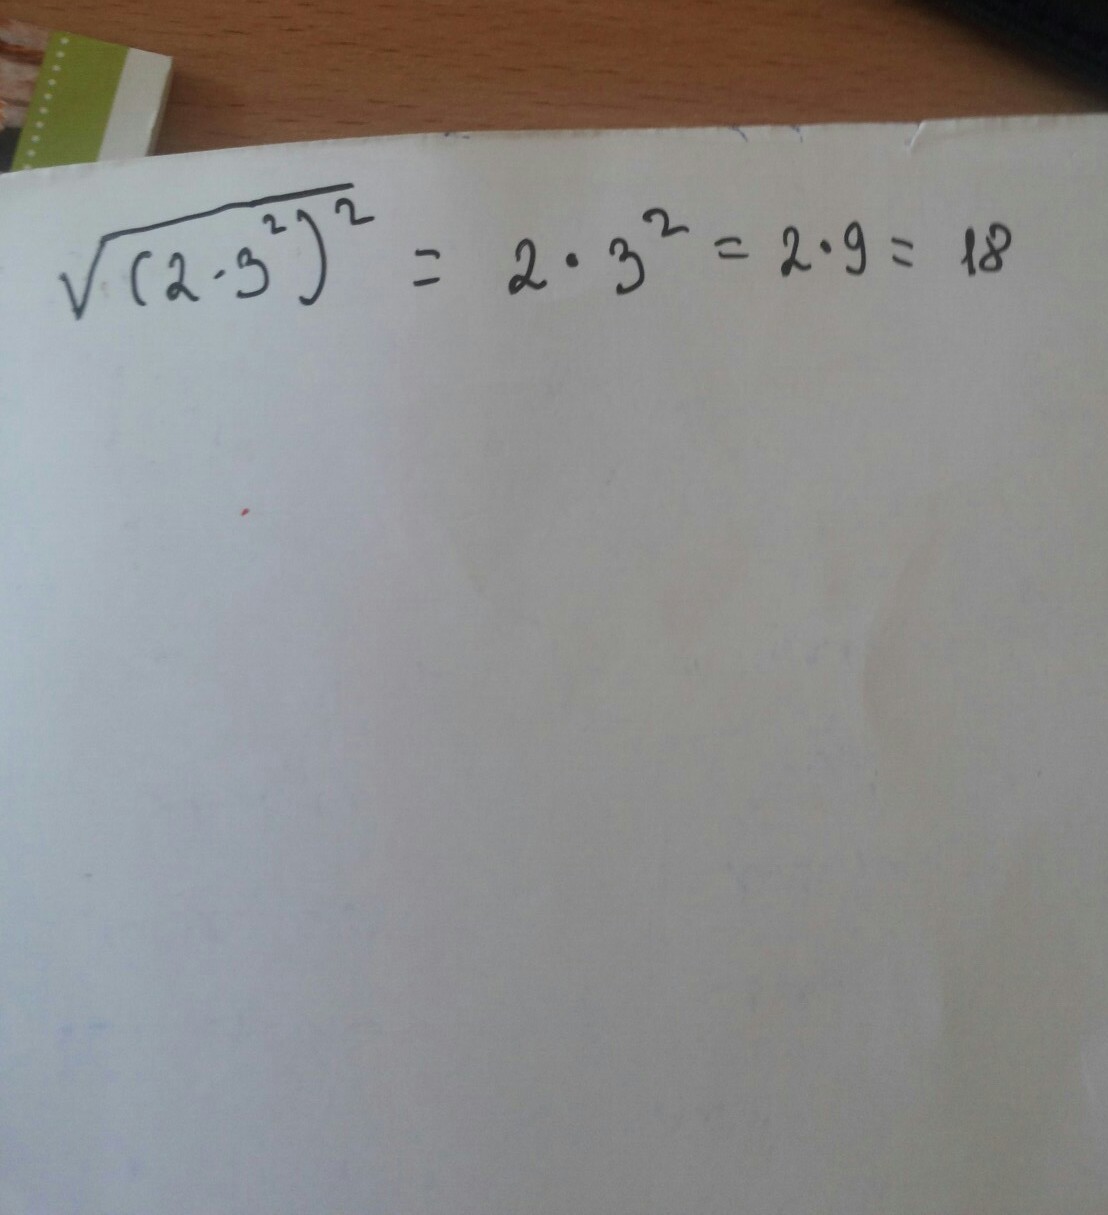 √(2·3²)² = 2·3² = 2·9 = 18